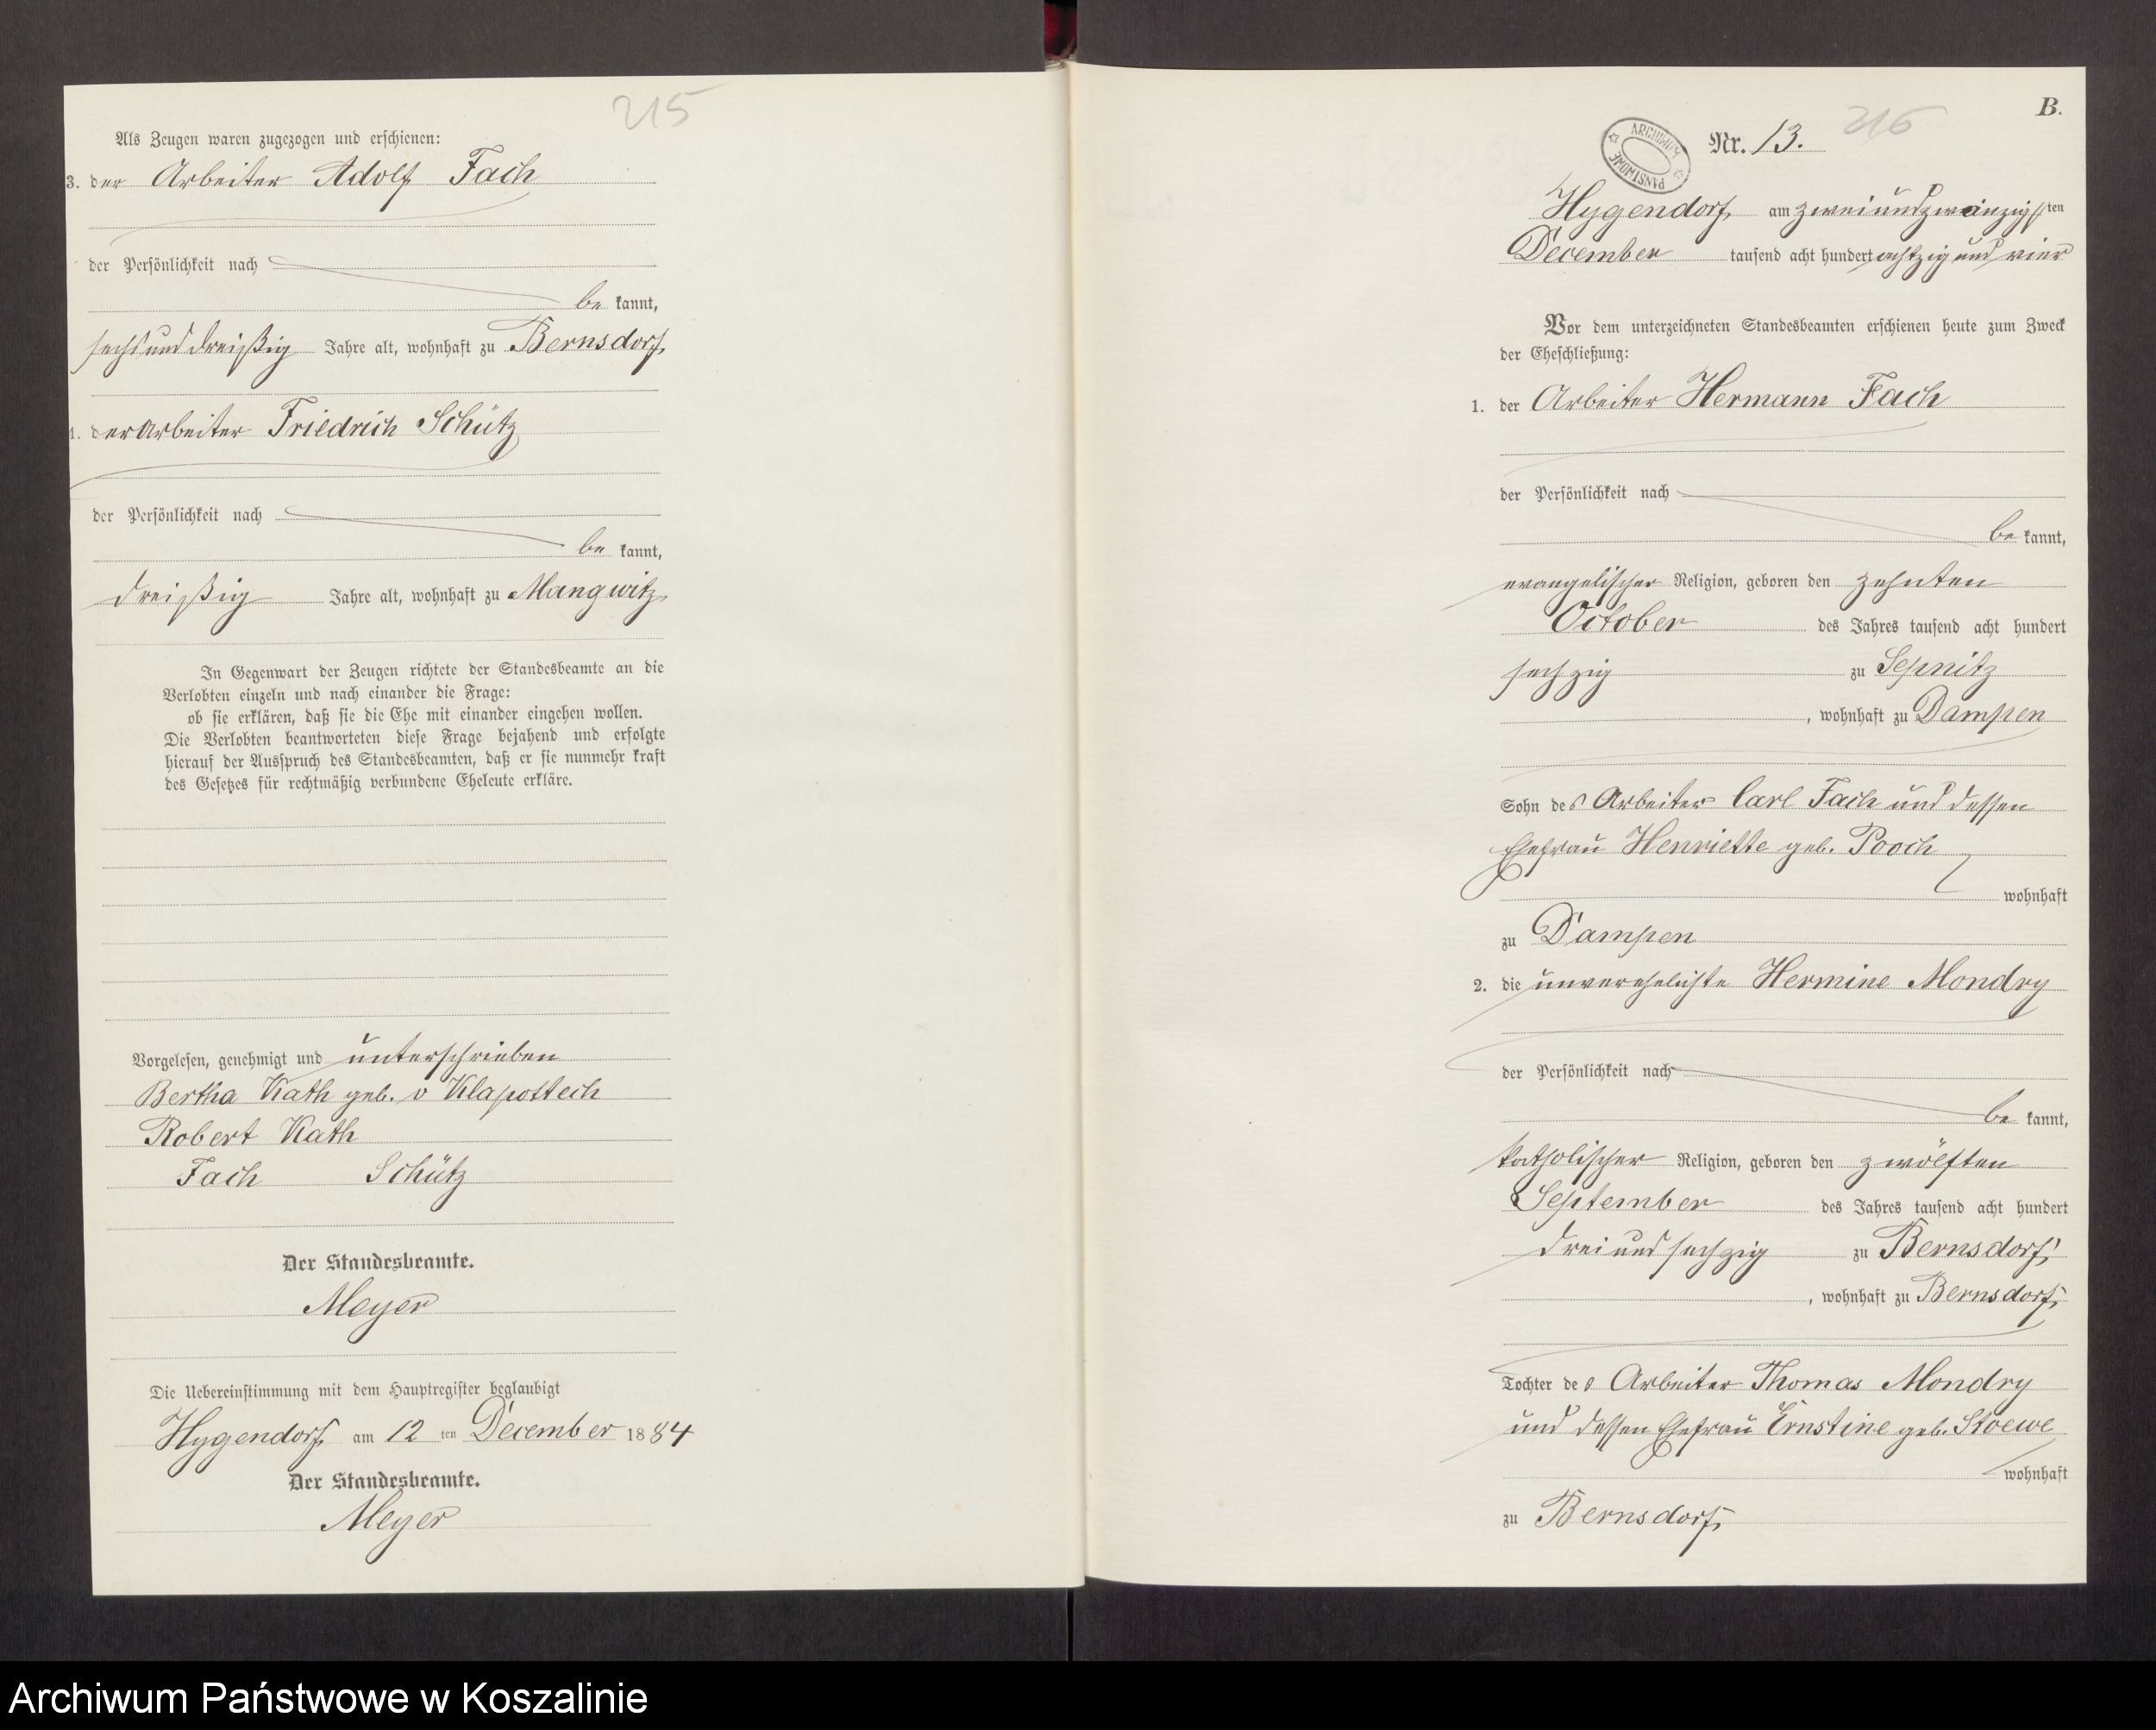 215
Als Zeugen waren zugezogen und erschienen:
3. der Arbeiter Adolf Fach
der Persönlichkeit nach
be kannt,
sechsunddreißig Jahre alt, wohnhaft zu Bernsdorf
4. der Arbeiter Friedrich Schütz
der Persönlichkeit nach
be kannt,
dreißig Jahre alt, wohnhaft zu Mangwitz
In Gegenwart der Zeugen richtete der Standesbeamte an die
Verlobten einzeln und nach einander die Frage:
ob sie erklären, daß sie die Ehe mit einander eingehen wollen.
Die Verlobten beantworteten diese Frage bejahend und erfolgte
hierauf der Ausspruch des Standesbeamten, daß er sie nunmehr kraft
des Gesetzes für rechtmäßig verbundene Eheleute erkläre.
Vorgelesen, genehmigt und unterschrieben
Bertha Kath geb. v Klapottech
Robert Kath
Fach Schütz
Der Standesbeamte.
Meyer
Die Uebereinstimmung mit dem Hauptregister beglaubigt
Hygendorf am 12 ten December 1884
Der Standesbeamte.
Meyer
B.
216
ARCHIWUM PAŃSTWOWE
Nr. 13.
Hygendorf am zweiundzwanzigsten
December tausend acht hundert achtzig und vier
Vor dem unterzeichneten Standesbeamten erschienen heute zum Zweck
der Eheschließung:
1. der Arbeiter Hermann Fach
der Persönlichkeit nach
be kannt,
evangelischer Religion, geboren den zehnten
October des Jahres tausend acht hundert
sechzig zu Sepnitz
, wohnhaft zu Dampen
Sohn des Arbeiter Carl Fach und dessen
Ehefrau Henriette geb. Pooch
wohnhaft
zu Dampen
2. die unverehelichte Hermine Mondry
der Persönlichkeit nach
be kannt,
katholischer Religion, geboren den zwölften
September des Jahres tausend acht hundert
dreiundsechzig zu Bernsdorf
, wohnhaft zu Bernsdorf
Tochter des Arbeiter Thomas Mondry
und dessen Ehefrau Ernstine geb. Stoewe
wohnhaft
zu Bernsdorf
Archiwum Państwowe w Koszalinie